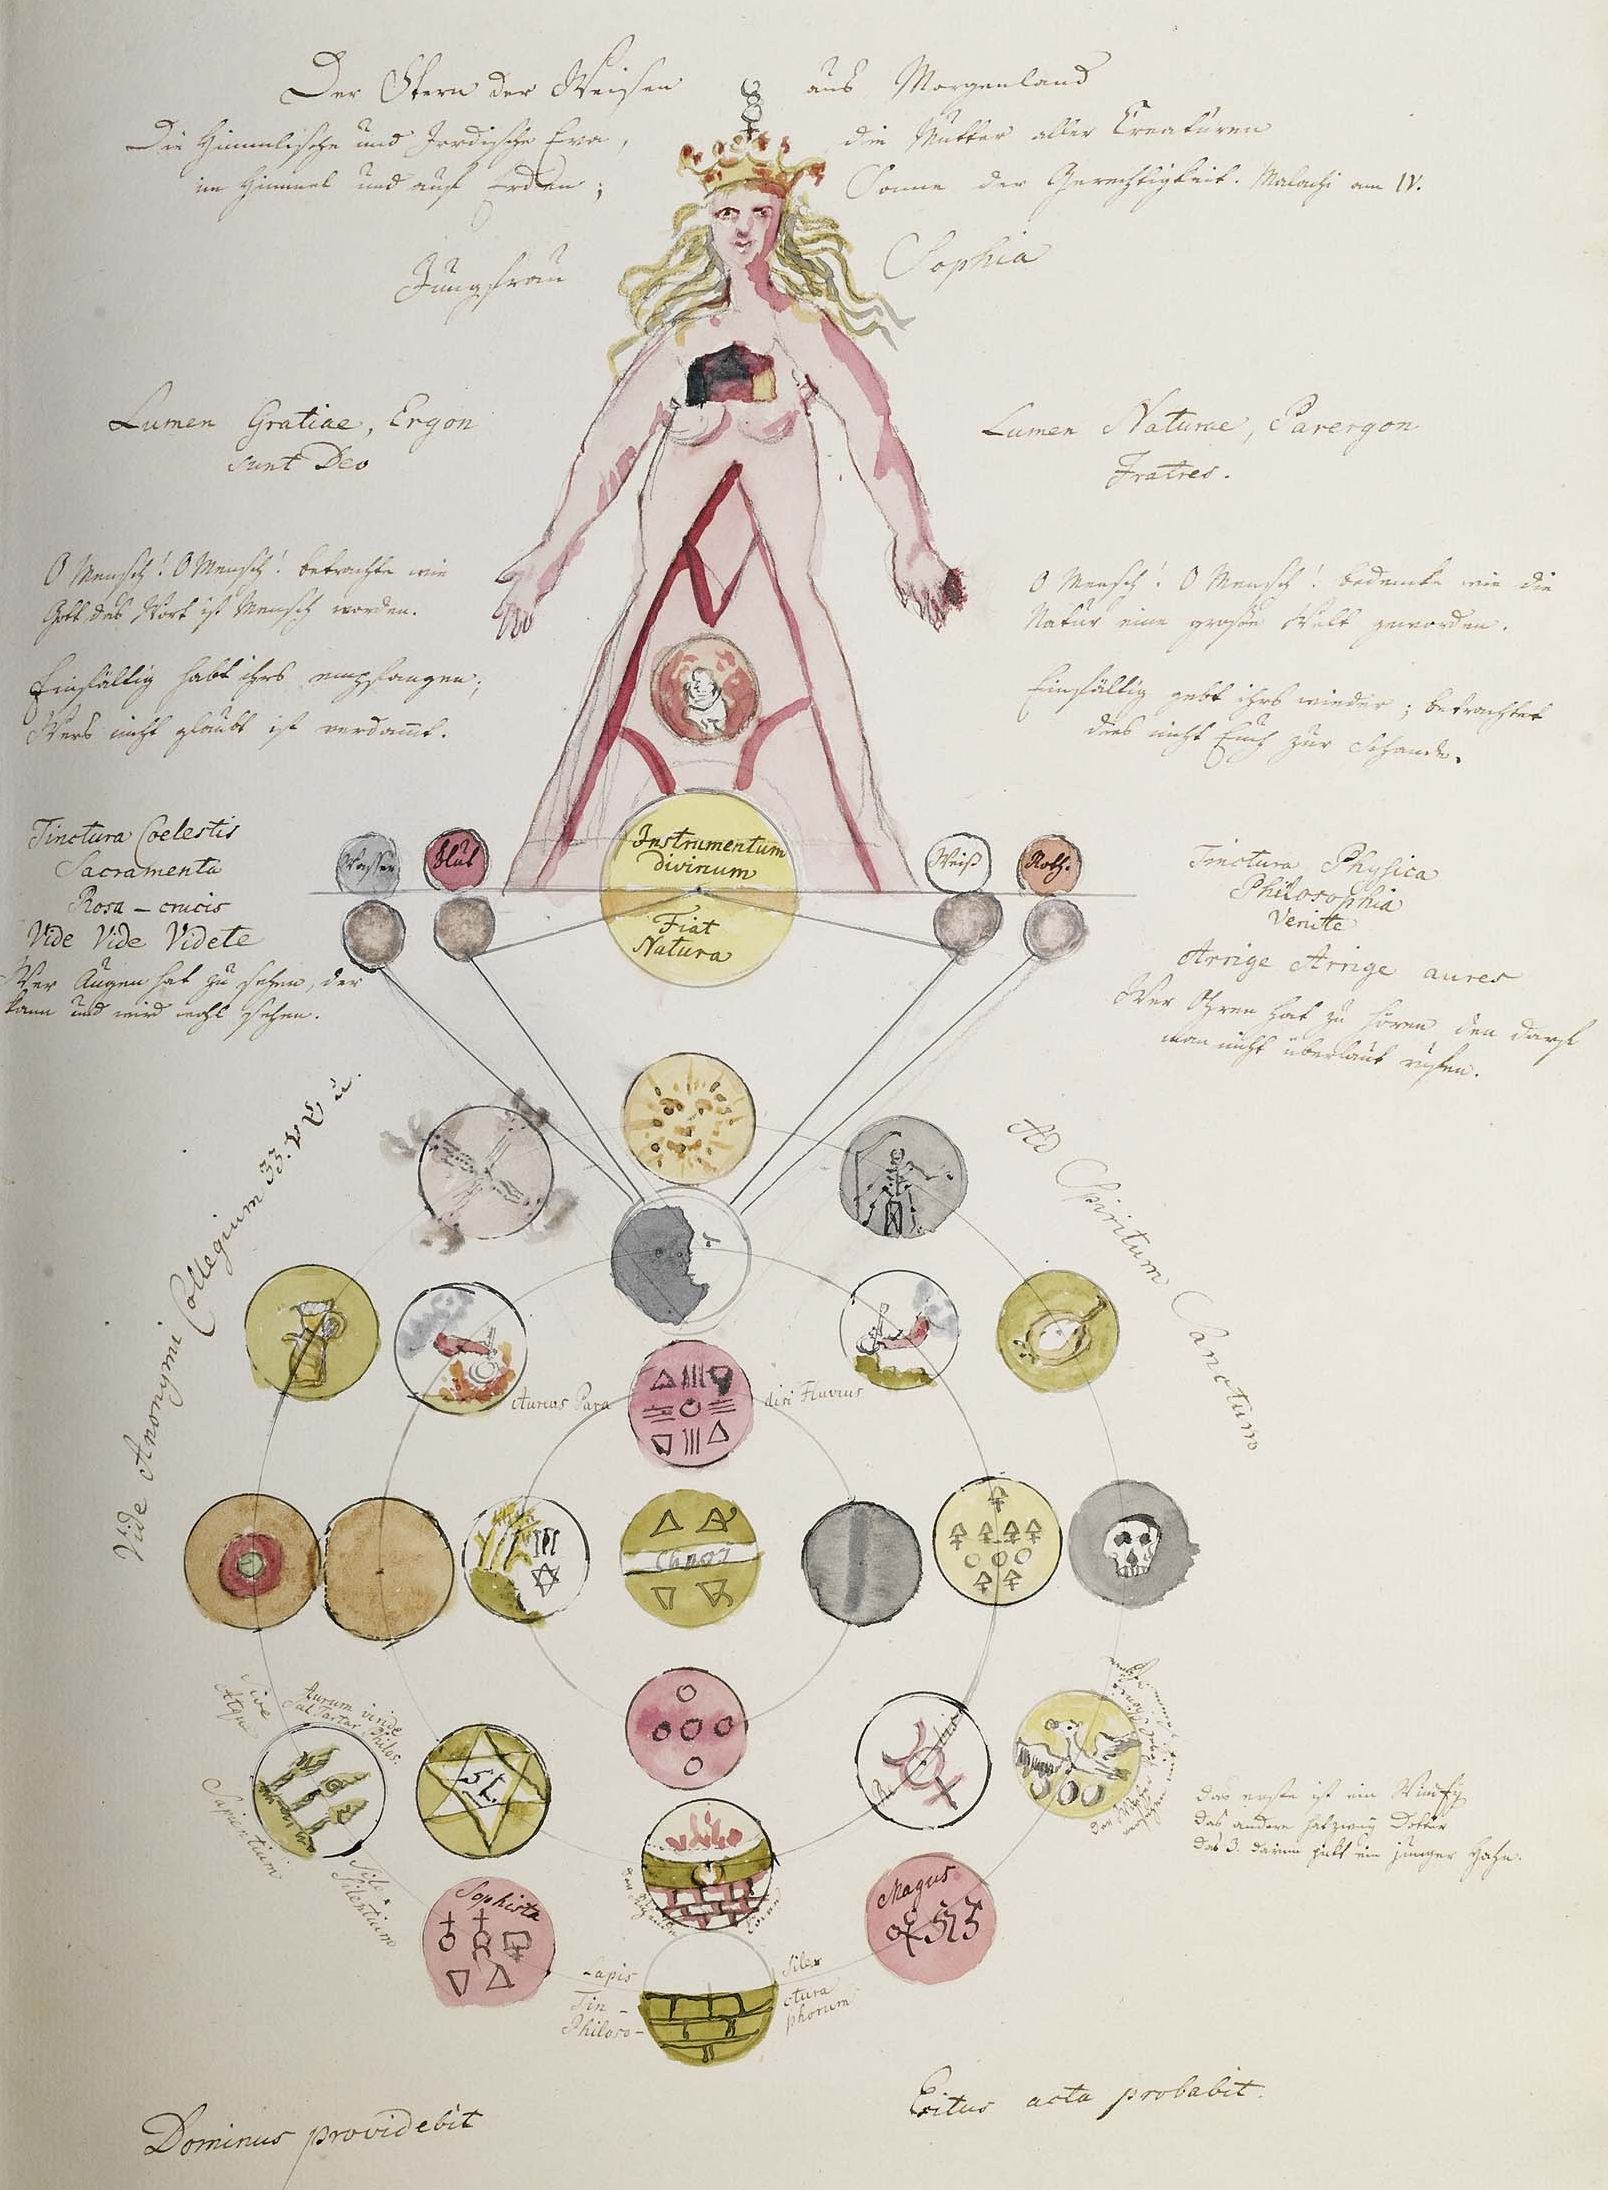 Der Stern der Weisen aus Morgenland
Die Himmlische und Irrdische Eva, die Mutter aller Creaturen
im Himmel und auf Erden; Sonne der Gerechtigkeit. Malachi am IV.
Jungfrau Sophia
Lumen Gratiae, Ergon
sunt Deo
Lumen Naturae, Parergon
Fratres.
O Mensch! O Mensch! betrachte wie
Gott das Wort ist Mensch worden.
Einfältig habt ihrs empfangen;
Wers nicht glaubt ist verdamt.
O Mensch! O Mensch! bedencke wie die
Natur eine große Welt geworden.
Einfältig gebt ihrs wieder; betrachtet
dies nicht Euch zur Schande.
Tinctura Coelestis
Sacramenta
Rosa-crucis
Vide Vide Videte
Wer Augen hat zu sehen, der
kann und wird wohl sehen.
Wasser
Blut
Instrumentum
divinum
Fiat
Natura
Weiß
Roth.
Tinctura Physica
Philosophia
Venite
Arrige Arrige aures
Wer Ohren hat zu hören den darf
man nicht überlaut rufen.
Vide Anonymi Collegium
Ad Spiritum Sanctum
Aureus Para disi Fluvius
Chaos
Sive
Aqu
Aurum viride
Sal Tartar. Philos.
Sapientium
Sile
Silentium
St.
Sophista
Magus
Lapis
Tin-
Philoso-
Silex
ctura
phorum
das erste ist ein Windey
das andere hat zwey Dotter
das 3. darinn pickt ein junger Hahn.
Dominus providebit
Exitus acta probabit.